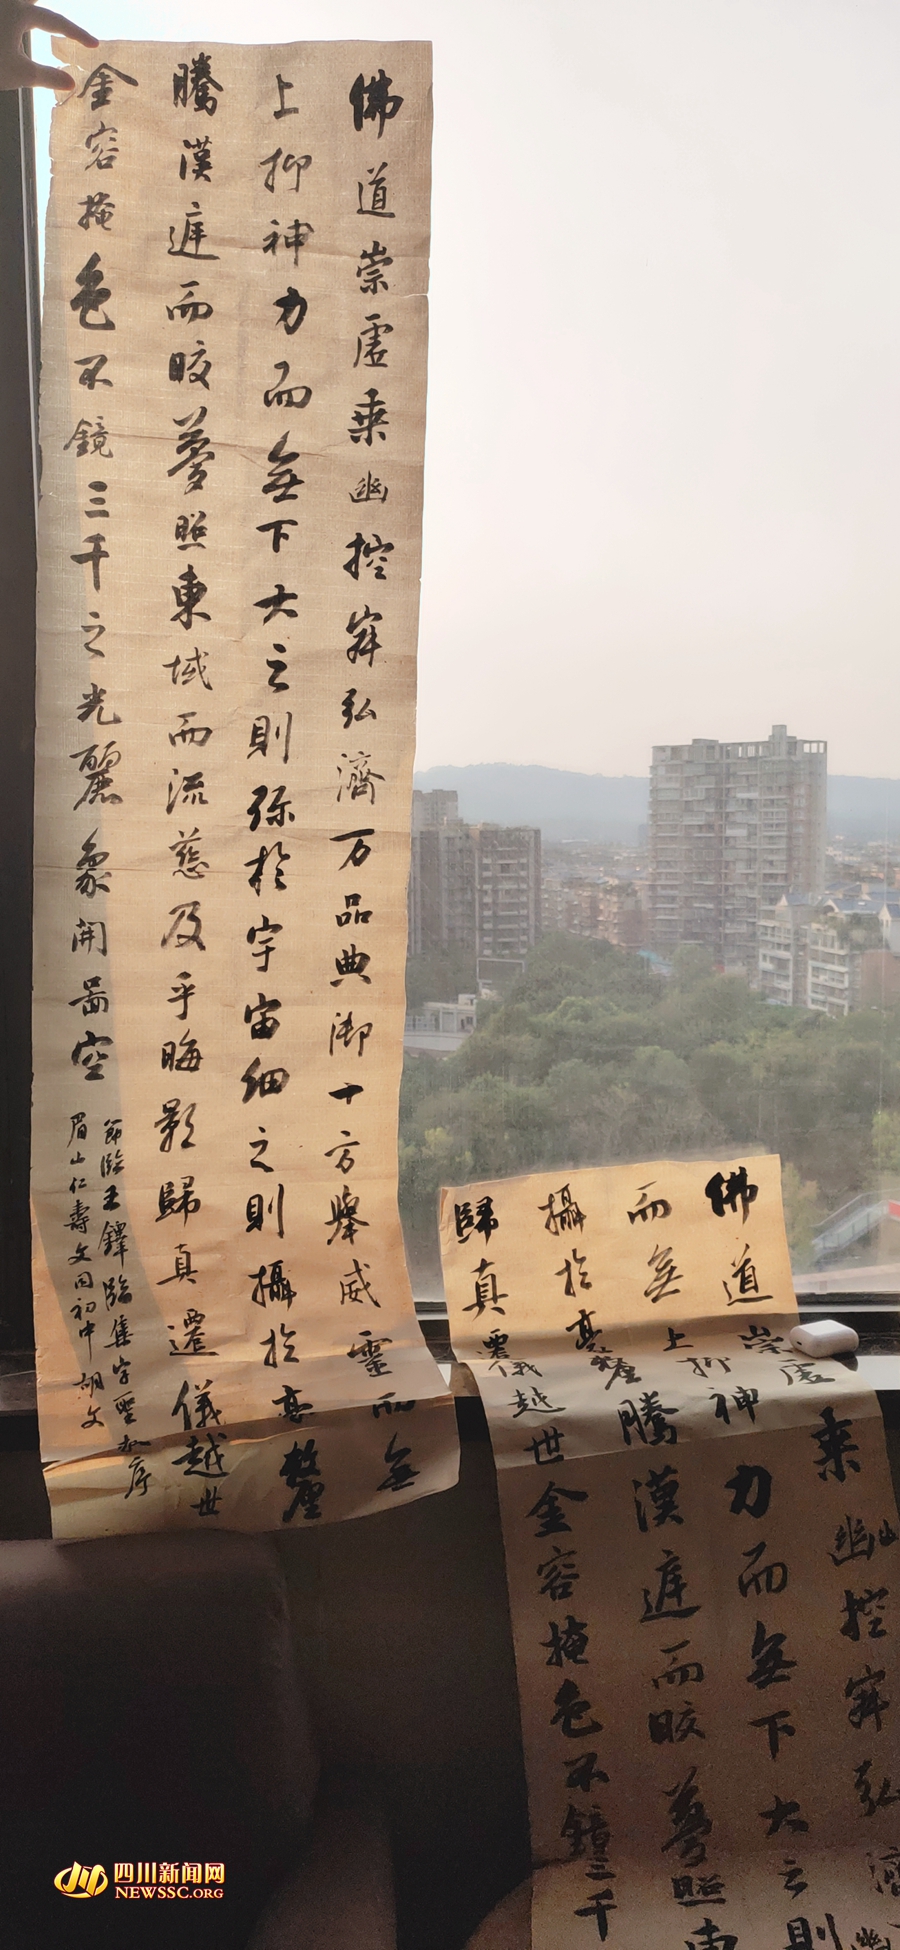 佛道崇虛乘幽控寂弘濟万品典御十方舉威靈而無
上抑神力而無下大之則弥於宇宙細之則攝於毫釐
騰漢庭而皎夢照東域而流慈及乎晦影歸真遷儀越世
金容掩色不鏡三千之光麗象開圖空
節臨王鐸臨集字聖教序
眉山仁壽文同初中 胡文
佛道崇虛乘幽控寂弘濟
而無上抑神力而無下大之則
攝於毫釐騰漢庭而皎夢照東
歸真遷儀越世金容掩色不鏡三千
四川新闻网
NEWSSC.ORG